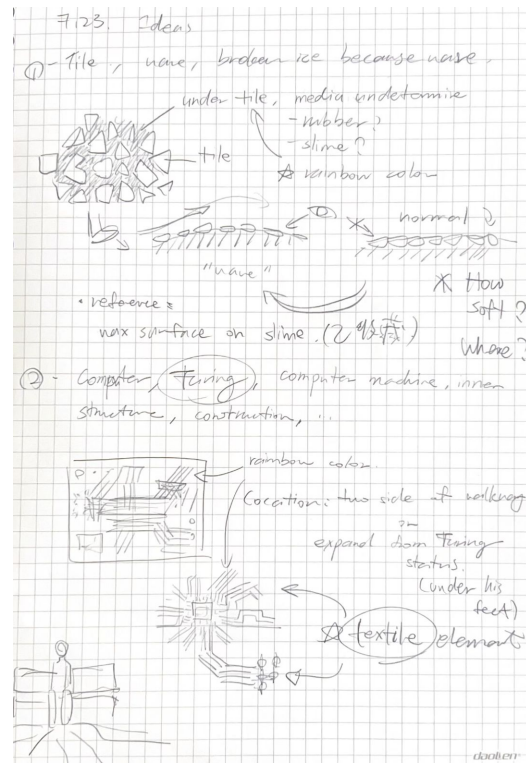 7.23. Ideas
① - Tile, wave, broken ice because wave.
under tile, media undetermine
- rubber?
- slime?
☆ rainbow color
tile
normal
"wave"
※ How
soft?
Where?
• reference:
wax surface on slime. (
② - Computer, Turing, computer machine, inner
structure, construction, ...
rainbow color.
Location: two side of walkway
or
expand from Turing
status.
(under his
feet)
☆ textile element
daolien